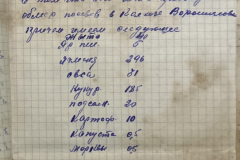 обмер посевов в колхозе Ворошилова
причем имеем следующее
Яр пш. 5
Ячмень 296
Овса 81
Кукур 185
подсолн 20
Картоф 10
Капуста 0,5
Моркови 0,5